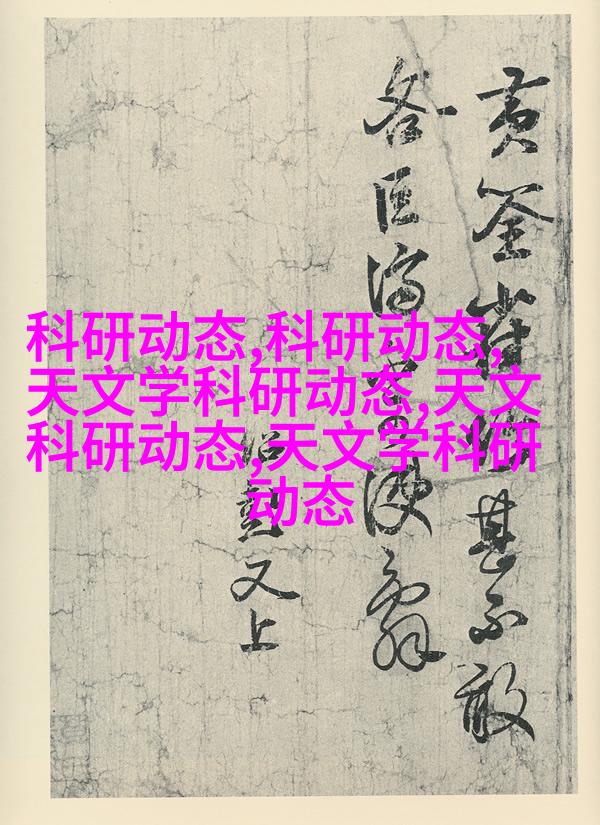 科研动态,科研动态,
天文学科研动态,天文
科研动态,天文学科研
动态
黄筌
甚不敢
又上